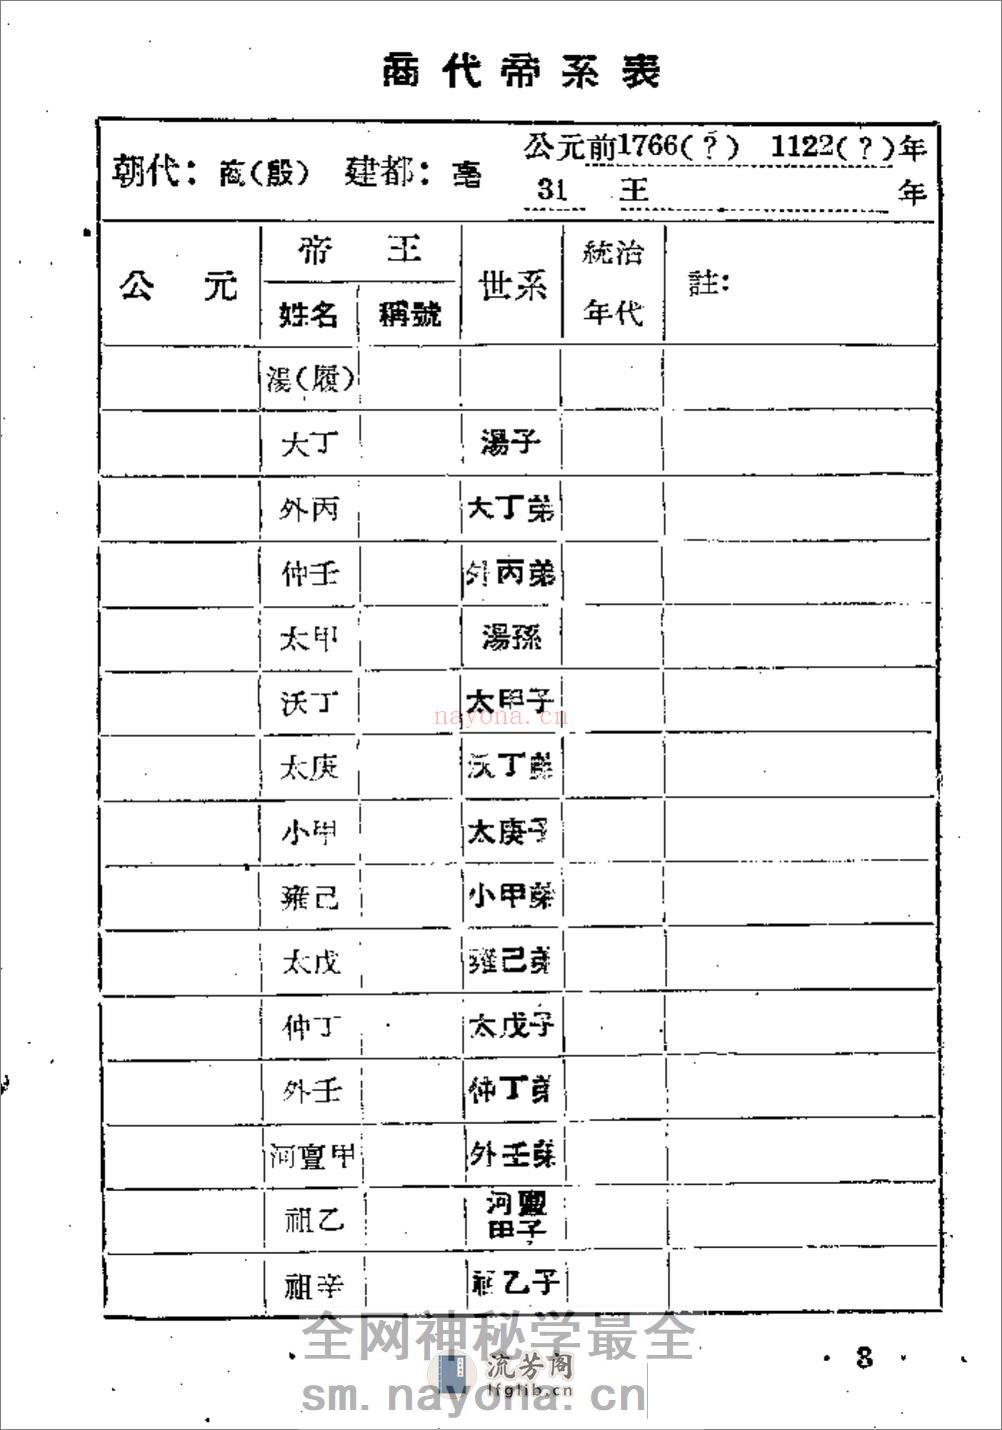 商代帝系表
朝代：商(殷) 建都：亳 公元前1766(?) 1122(?)年
31 王 年
公元 帝王 世系 統治年代 註：
姓名 稱號
湯(履)
大丁 湯子
外丙 大丁弟
仲壬 外丙弟
太甲 湯孫
沃丁 太甲子
nayona.cn
太庚 沃丁弟
小甲 太庚子
雍己 小甲弟
太戊 雍己弟
仲丁 太戊子
外壬 仲丁弟
河亶甲 外壬弟
祖乙 河亶甲子
祖辛 祖乙子
全网神秘学最全
流芳阁
lfglib.cn
sm.nayona.cn
8